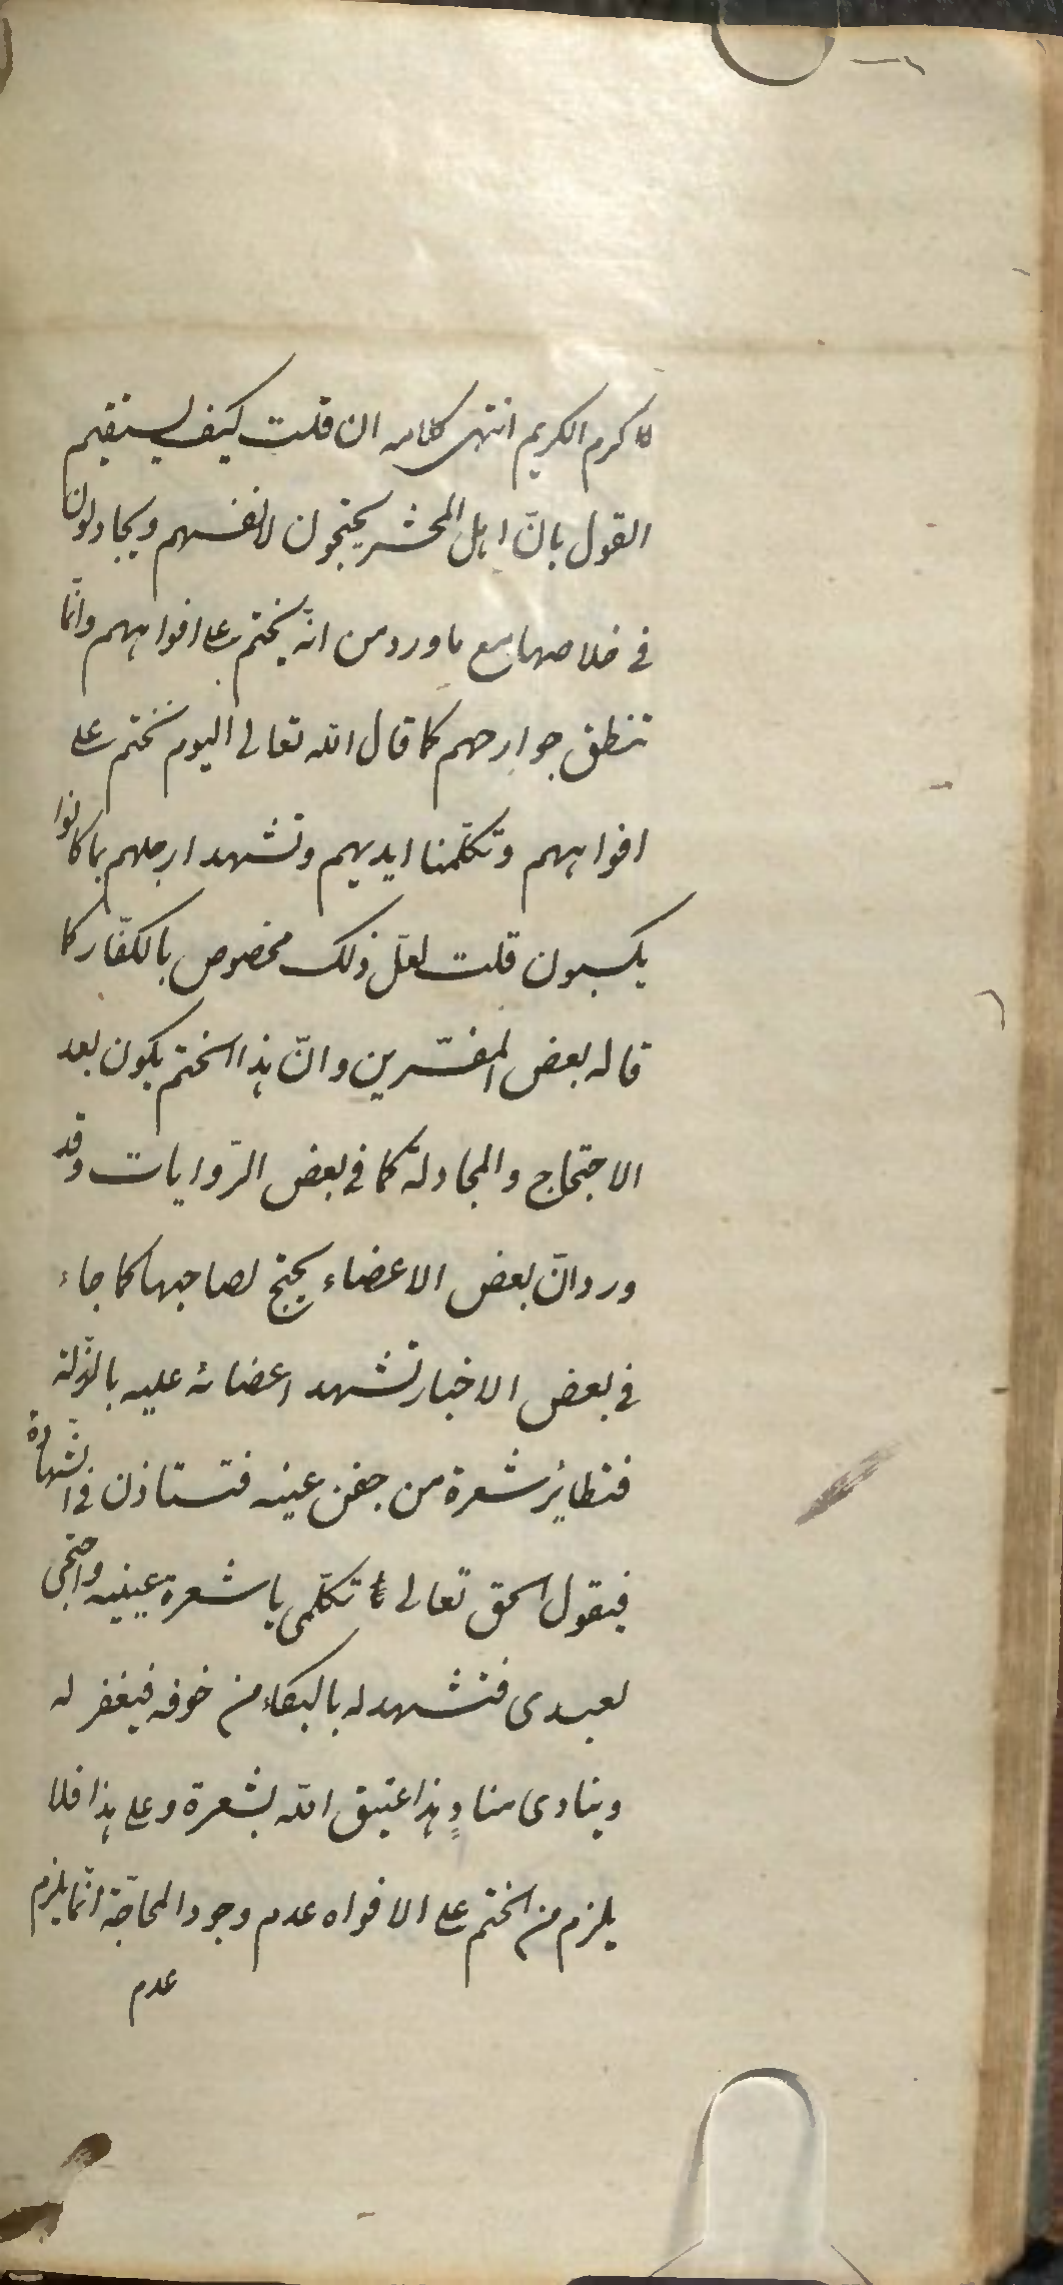 كاكرم الكريم انتهى كلامه ان قلت كيف يستقيم
القول بانّ اهل المحشر يحتجون لانفسهم ويجادلون
في خلاصها مع ما ورد من انّه يختم على افواههم وانّما
تنطق جوارحهم كما قال الله تعالى اليوم نختم على
افواههم وتكلّمنا ايديهم وتشهد ارجلهم بما كانوا
يكسبون قلت لعلّ ذلك مخصوص بالكفّار كما
قاله بعض المفسّرين وانّ هذا الختم يكون بعد
الاحتجاج والمجادلة كما في بعض الرّوايات وقد
ورد انّ بعض الاعضاء يحتج لصاحبها كما جاء
في بعض الاخبار تشهد اعضائه عليه بالزّلة
فتطاير شعرة من جفن عينه فتستاذن في الشّهادة
فيقول الحق تعالى تكلّمى يا شعرة عينيه واحتجّى
لعبدى فتشهد له بالبكاء من خوفه فيغفر له
وينادى منادٍ هذا عتيق الله بشعرة وعلى هذا فلا
يلزم من الختم على الافواه عدم وجود المحاجّة انّما يلزم
عدم